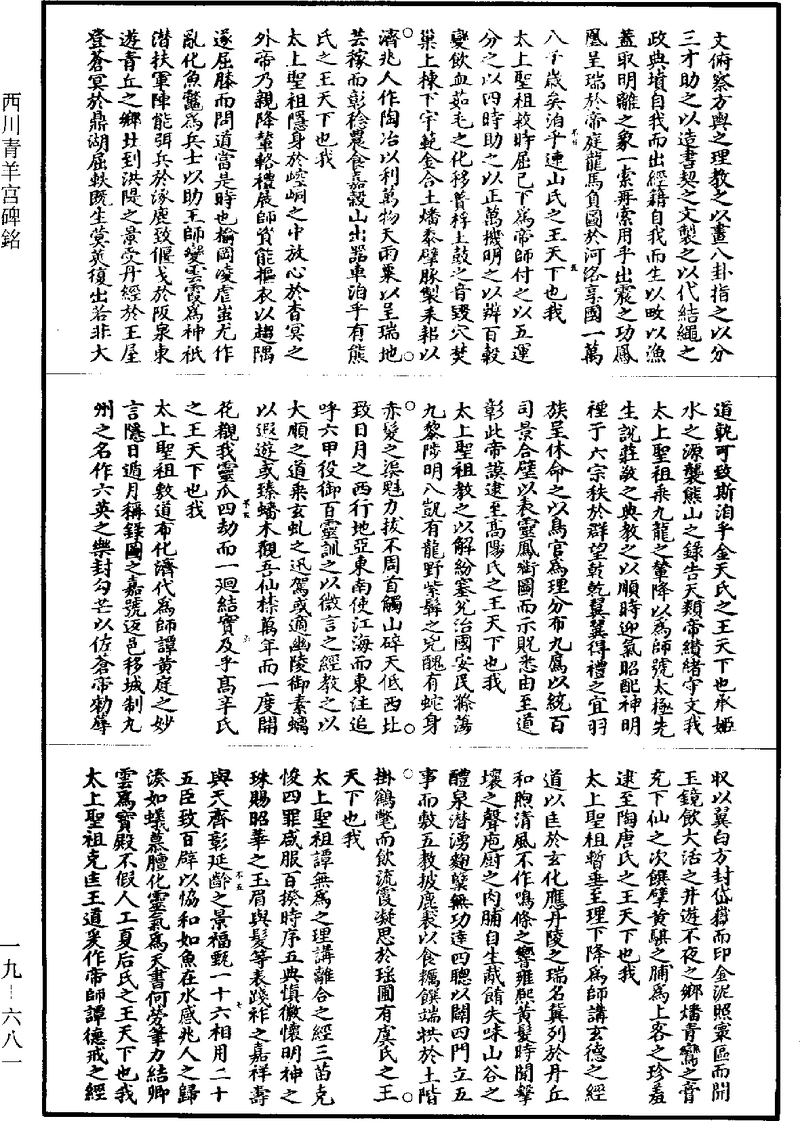 文俯察方輿之理教之以畫八卦指之以分
三才助之以造書契之文製之以代結繩之
政典墳自我而出經籍自我而生以畋以漁
蓋取明離之象一索再索用乎出震之功鳳
凰呈瑞於帝庭龍馬負圖於河洛享國一萬
八千歲矣洎乎連山氏之王天下也我
太上聖祖救時屈己下為帝師付之以五運
分之以四時助之以正萬機明之以辨百穀
變飲血茹毛之化移蕢桴土鼓之音燧穴焚
巢上棟下宇範金合土燔黍擘豚製耒耜以
濟兆人作陶冶以利萬物天雨粟以呈瑞地
芸稼而彰稔農食嘉穀山出器車洎乎有熊
氏之王天下也我
太上聖祖隱身於崆峒之中放心於杳冥之
外帝乃親降輦輅禮展師資能摳衣以趨隅
遂屈膝而問道當是時也榆岡凌虐蚩尤作
亂化魚鼈為兵士以助王師變雲霞為神祇
潛扶軍陣能弭兵於涿鹿致偃戈於阪泉東
遊青丘之鄉北到洪隄之景受丹經於王屋
登蒼冥於鼎湖屈軼既生蓂莢復出若非大
道孰可致斯洎乎金天氏之王天下也承姬
水之源襲熊山之錄告天類帝纘緒守文我
太上聖祖乘九龍之輦降以為師號太極先
生說莊敬之典教之以順時迎氣昭配神明
禋于六宗秩於群望乾乾翼翼得禮之宜羽
族呈休命之以鳥官為理分布九鳸以統百
司景合璧以表靈鳳銜圖而示貺悉由至道
彰此帝謨逮至高陽氏之王天下也我
太上聖祖教之以解紛塞兌治國安民滌蕩
九黎陟明八凱有龍野紫髯之兇醜有蛇身
赤髮之渠魁力拔不周首觸山碎天低西北
致日月之西行地亞東南使江海而東注追
呼六甲役御百靈訓之以微言之經教之以
大順之道乘玄虬之迅駕或適幽陵御素螭
以遐遊或臻蟠木觀吾仙㮈萬年而一度開
花覩我靈瓜四劫而一迴結實及乎高辛氏
之王天下也我
太上聖祖敷道布化濟代為師譚黃庭之妙
言隱日遁月稱錄圖之嘉號返邑移城制九
州之名作六英之樂封勾芒以佐蒼帝勑蓐
收以翼白方封岱嶽而印金泥照寰區而開
玉鏡飲大活之井遊不夜之鄉燔青鸞之膏
充下仙之次饌擘黃騏之脯為上客之珍羞
逮至陶唐氏之王天下也我
太上聖祖暫垂至理下降為師講玄德之經
道以匡於玄化應丹陵之瑞名冀列於丹丘
和煦清風不作鳴條之響雍熙黃髮時聞擊
壤之聲庖廚之肉脯自生胾餚失味山谷之
醴泉潛湧麴糵無功達四聰以闢四門立五
事而敷五教披鹿裘以食糲饌端拱於土階
掛鶴氅而飲流霞凝思於瑤圃有虞氏之王
天下也我
太上聖祖譚無為之理講離合之經三苗克
悛四罪咸服百揆時序五典慎徽懷明神之
珠賜昭華之玉眉與髮等表踐祚之嘉祥壽
與天齊彰延齡之景福甄一十六相用二十
五臣致百辟以恊和如魚在水感兆人之歸
湊如蟻慕膻化靈氣為天書何勞筆力結卿
雲為寶殿不假人工夏后氏之王天下也我
太上聖祖克匡王道爰作帝師譚德戒之經
西川青羊宮碑銘
一九—六八一